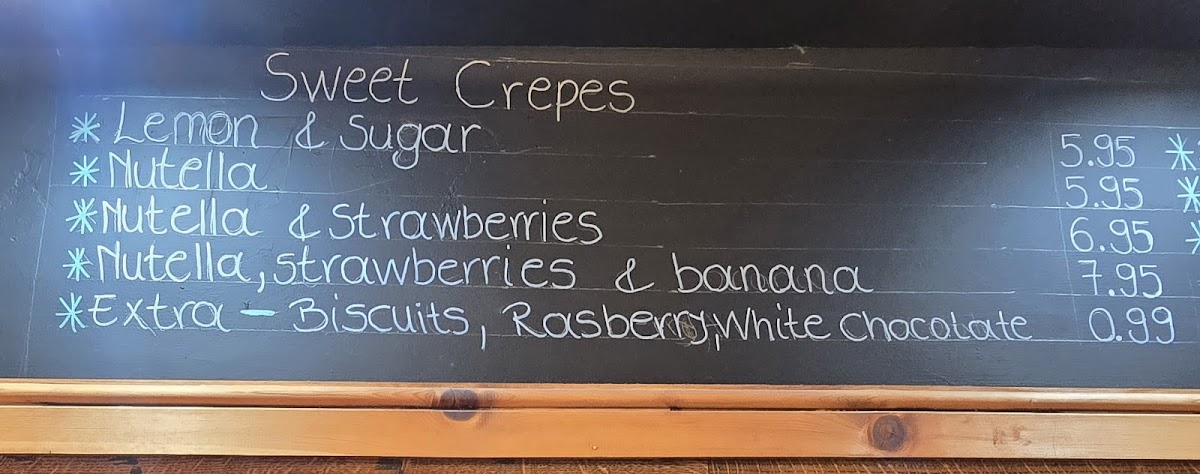 Sweet Crepes
* Lemon & Sugar 5.95 *
* Nutella 5.95 *
* Nutella & Strawberries 6.95 *
* Nutella, strawberries & banana 7.95
* Extra - Biscuits, Rasberry, White Chocolate 0.99